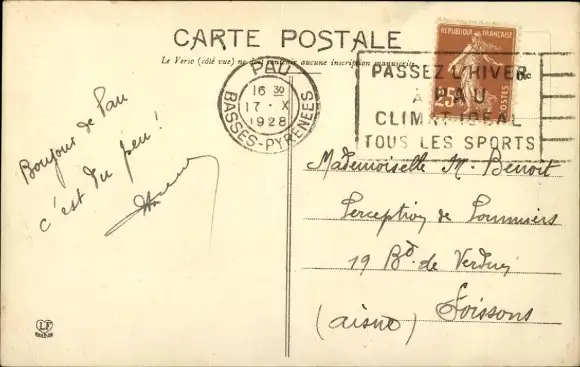 CARTE POSTALE
Le Verso (côté vue) ne doit contenir aucune inscription manuscrite.
REPUBLIQUE FRANÇAISE
25c
POSTES
PAU
16 30
17 · X
1928
BASSES-PYRENEES
PASSEZ L'HIVER
A PAU
CLIMAT IDEAL
TOUS LES SPORTS
Bonjour de Pau
c'est du peu!
Mademoiselle M. Benoit
Perception de
19 Bd. de Verdun
Soissons
(Aisne)
LF